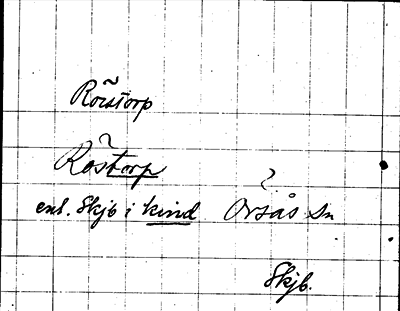 Roestorp
Röstorp
enl. Skjb i Kind Örsås Sn
Skjb.